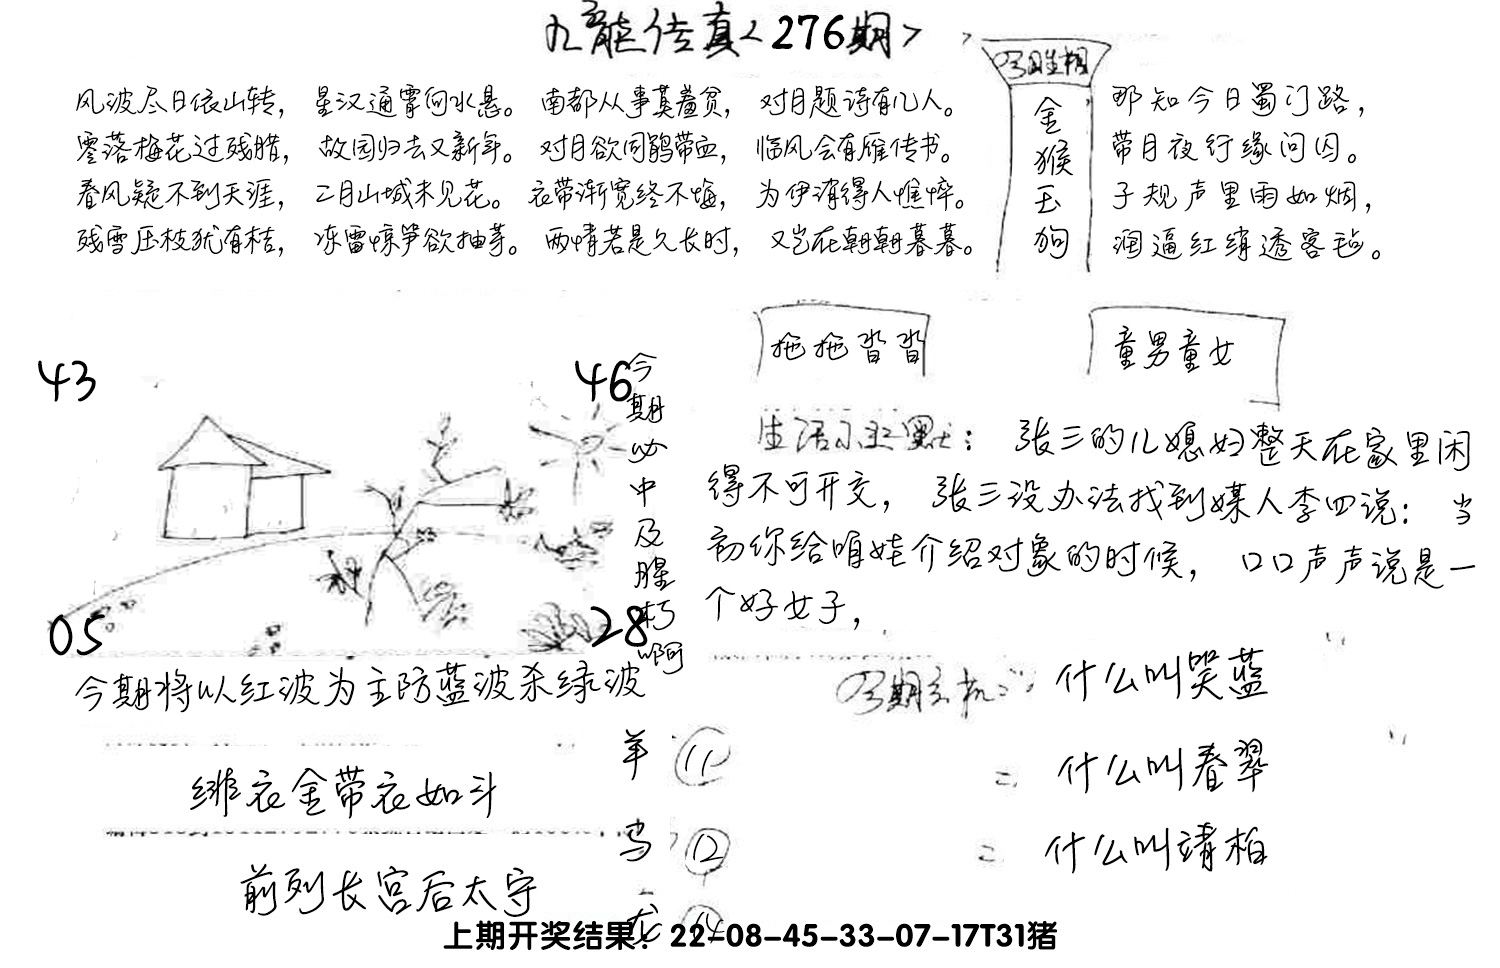 九龍传真<276期>
风波尽日依山转，星汉通霄向水悬。南都从事莫羞贫，对月题诗有几人。
零落梅花过残腊，故园归去又新年。对月欲问鹃带血，临风会有雁传书。
春风疑不到天涯，二月山城未见花。衣带渐宽终不悔，为伊消得人憔悴。
残雪压枝犹有桔，冻雷惊笋欲抽芽。两情若是久长时，又岂在朝朝暮暮。
金猴玉狗
那知今日蜀门路，
带月夜行缘问囚。
子规声里雨如烟，
润逼红绡透客毡。
拖拖沓沓
童男童女
43
46
05
28
今期必中及腥朽啊
今期将以红波为主防蓝波杀绿波
生活小幽默：张三的儿媳妇整天在家里闲
得不可开交，张三没办法找到媒人李四说：当
初你给咱娃介绍对象的时候，口口声声说是一
个好女子，
今期玄机：什么叫哭蓝
=什么叫春翠
=什么叫靖柏
绯衣金带衣如斗
前列长宫后太守
羊 11
鸟 12
上期开奖结果：22-08-45-33-07-17T31猪